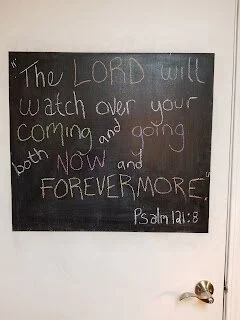 "The LORD will
watch over your
coming and going
both NOW and
FOREVERMORE."
Psalm 121:8